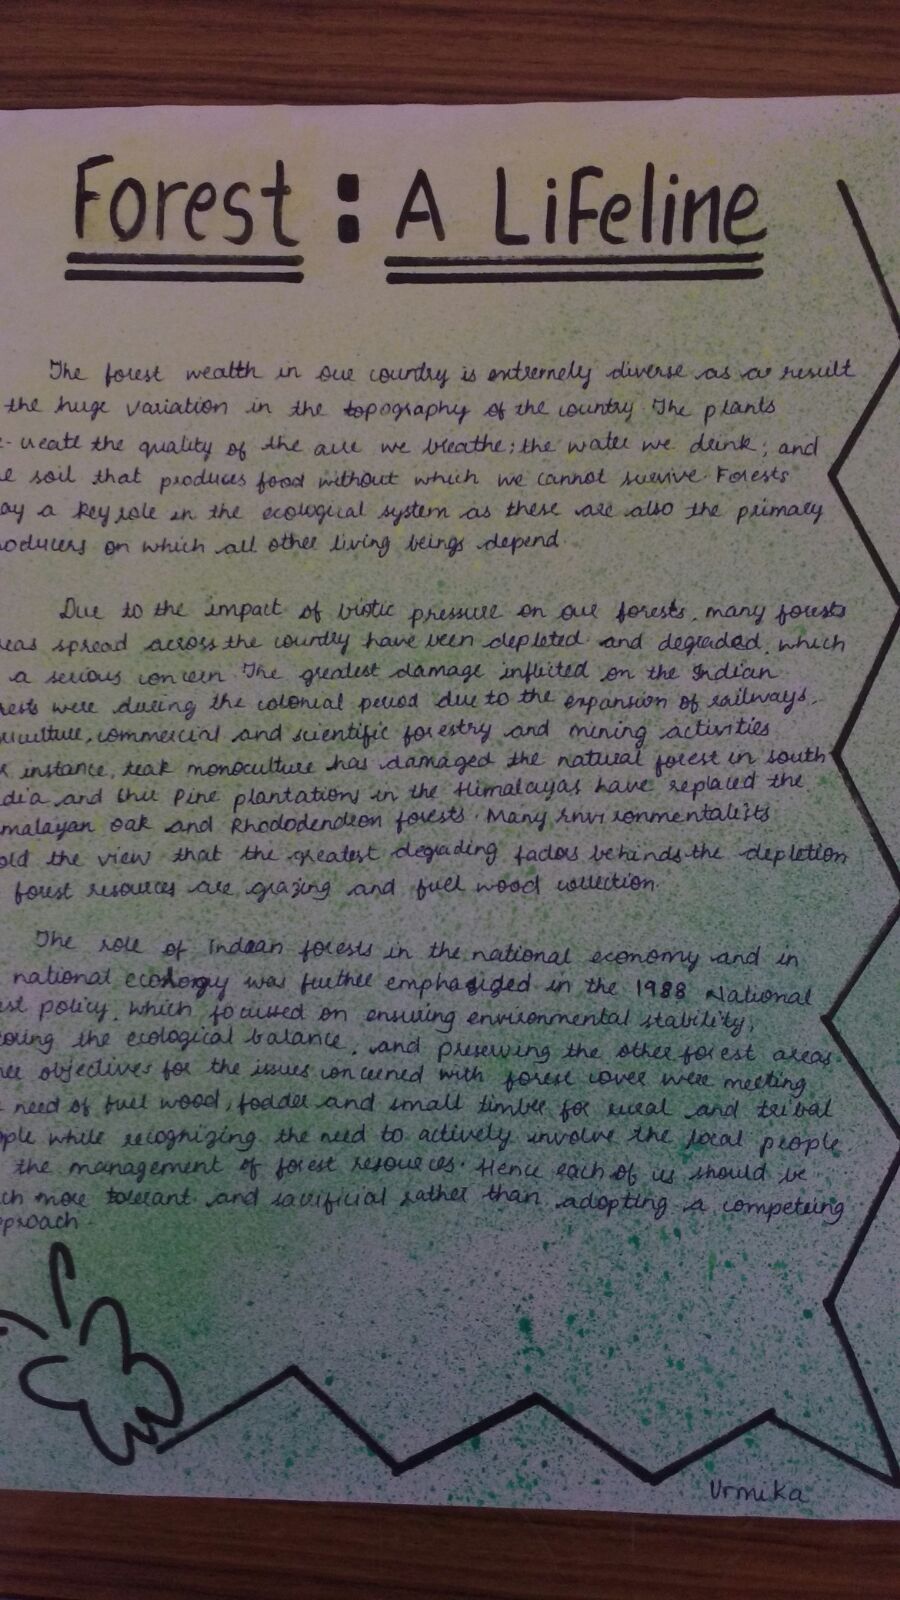 Forest : A Lifeline
The forest wealth in our country is extremely diverse as a result
the huge variation in the topography of the country. The plants
-create the quality of the air we breathe; the water we drink; and
e soil that produces food without which we cannot survive. Forests
ay a key role in the ecological system as these are also the primary
oducers on which all other living beings depend.
Due to the impact of biotic pressure on our forests, many forests
eas spread across the country have been depleted and degraded, which
a serious concern. The greatest damage inflicted on the Indian
rests were during the colonial period due to the expansion of railways,
riculture, commercial and scientific forestry and mining activities
r instance, teak monoculture has damaged the natural forest in south
dia and Chir Pine plantations in the Himalayas have replaced the
malayan oak and Rhododendron forests. Many environmentalists
old the view that the greatest degrading factors behinds the depletion
forest resources are grazing and fuel wood collection.
The role of Indian forests in the national economy and in
national ecology was further emphasized in the 1988 National
est policy, which focussed on ensuring environmental stability,
toring the ecological balance, and preserving the other forest areas.
her objectives for the issues concerned with forest cover were meeting
need of fuel wood, fodder and small timber for rural and tribal
ople while recognizing the need to actively involve the local people
the management of forest resources. Hence each of us should be
ch more tolerant and sacrificial rather than adopting a competing
pproach.
Urmika